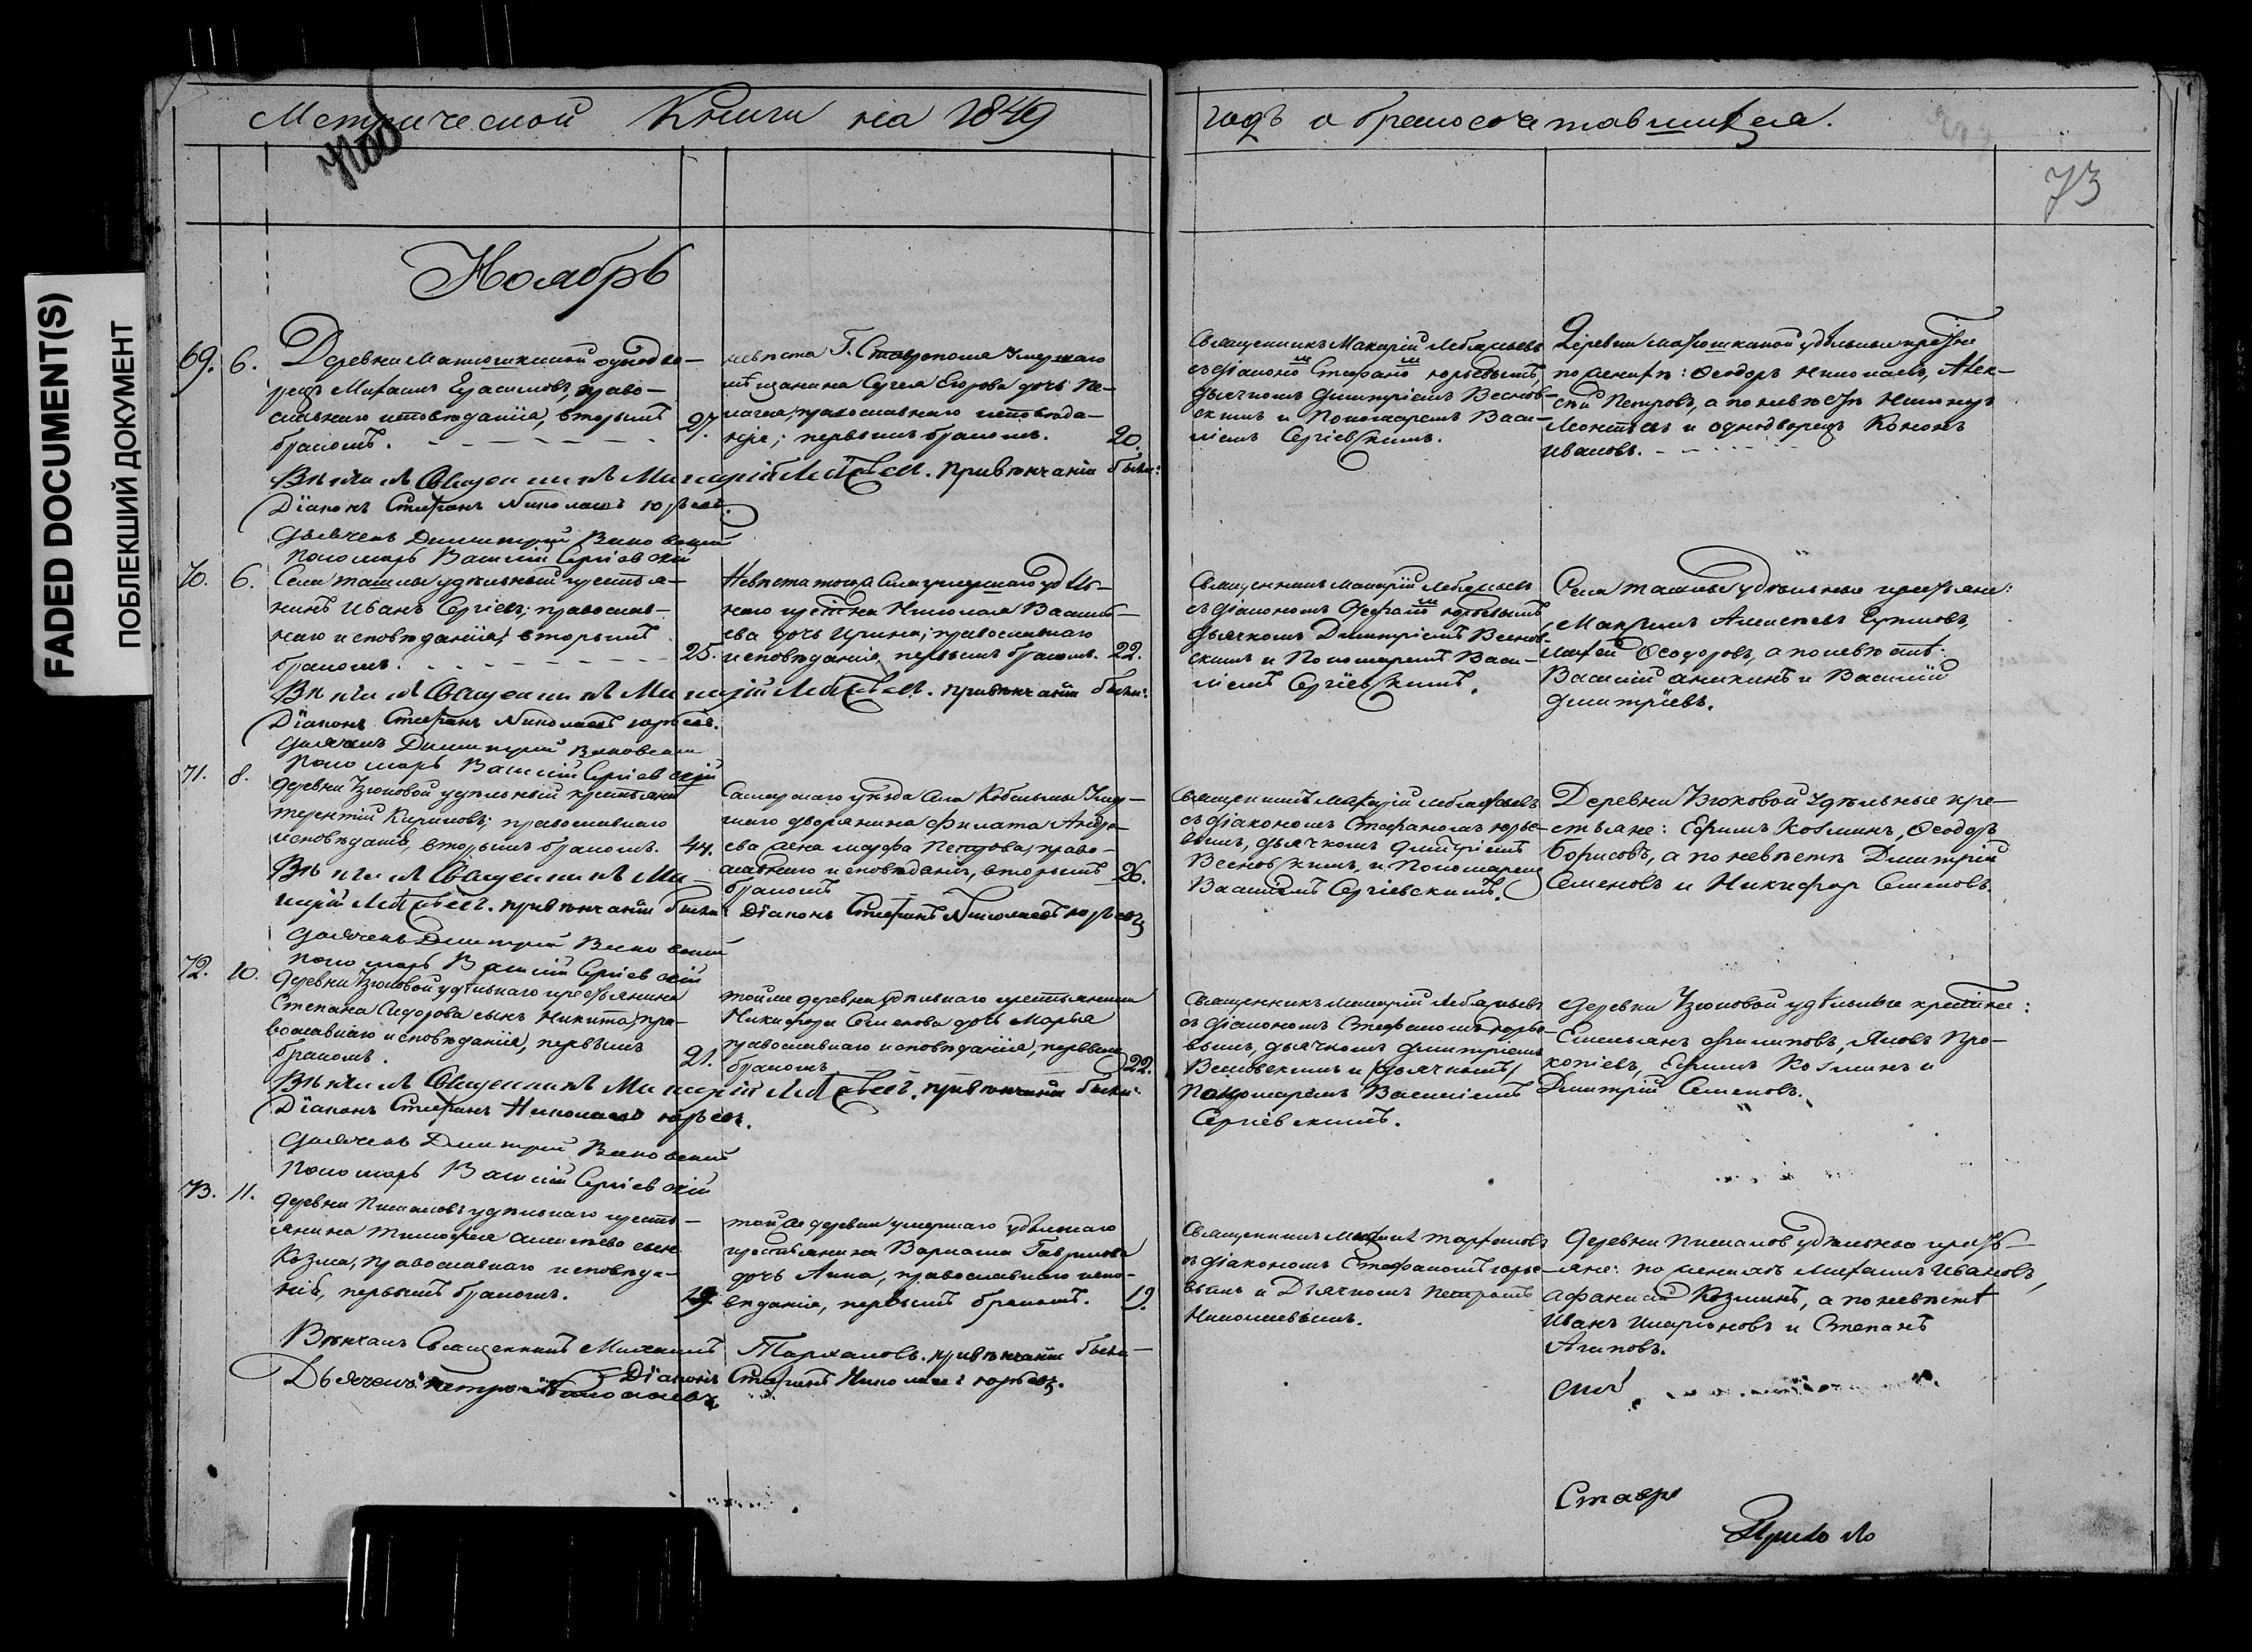 FADED DOCUMENT(S)
ПОБЛЕКШИЙ ДОКУМЕНТ
Метрической Книги на 1849
годъ о бракосочетавшихся.
73
Ноябрь
69. 6. Деревни одно дво-
рецъ Михаилъ Ерасимовъ, право-
славнаго исповѣданія, вторымъ
бракомъ. 27.
невѣста Г. Ставрополя умершаго
мѣщанина Сергея Егорова дочь Пе-
лагея, православнаго исповѣда-
нія; первымъ бракомъ. 20.
Священникъ Макарій Лебедевъ
съ діакономъ Стефаномъ Юрьевымъ,
дьячкомъ Димитріемъ Веснов-
скимъ и Пономаремъ Васи-
ліемъ Сергіевскимъ.
Деревни удѣльные
по женихѣ: Ѳеодоръ Николаевъ, Алек-
сѣй Петровъ, а по невѣстѣ
и однодворецъ Кононъ
Ивановъ.
Вѣнчалъ Священникъ Макарій. При вѣнчаніи были:
Діаконъ Стефанъ Николаевъ Юрьевъ.
Дьячекъ Димитрій Весновскій
Пономарь Василій Сергіевскій
70. 6. Села Ташлы удѣльный крестья-
нинъ Иванъ Сергіевъ; православ-
наго исповѣданія, вторымъ
бракомъ. 25.
Невѣста того села умершаго удѣль-
наго Николая Василь-
ева дочь Ирина; православнаго
исповѣданія, первымъ бракомъ. 22.
Священникъ Макарій Лебедевъ
съ діакономъ Стефаномъ Юрьевымъ
дьячкомъ Димитріемъ Веснов-
скимъ и Пономаремъ Васи-
ліемъ Сергіевскимъ.
Села Ташлы удѣльные крестьяне:
Алексѣевъ
Ѳеодоровъ, а по невѣстѣ:
Василій Аникинъ и Василій
Дмитріевъ.
Вѣнчалъ Священникъ Макарій. При вѣнчаніи были:
Діаконъ Стефанъ Николаевъ Юрьевъ.
Дьячекъ Димитрій Весновскій
Пономарь Василій Сергіевскій
71. 8. Деревни Узюковой удѣльный крестьянинъ
Терентій Кириловъ; православнаго
исповѣданія, вторымъ бракомъ. 44.
Самарскаго уѣзда села умер-
шаго дворянина Филата Андре-
ева жена Марфа Петрова, право-
славнаго исповѣданія, вторымъ 26.
бракомъ
Священникъ Макарій Лебедевъ
съ діакономъ Стефаномъ Юрье-
вымъ, дьячкомъ Димитріемъ
Весновскимъ, и Пономаремъ
Василіемъ Сергіевскимъ.
Деревни Узюковой удѣльные кре-
стьяне: Ефимъ Козминъ, Ѳеодоръ
Борисовъ, а по невѣстѣ Дмитрій
Семеновъ и Никифоръ Семеновъ.
Вѣнчалъ Священникъ Ма-
карій. При вѣнчаніи были: Діаконъ Стефанъ Николаевъ Юрьевъ
Дьячекъ Димитрій Весновскій
Пономарь Василій Сергіевскій
72. 10. Деревни Узюковой удѣльнаго крестьянина
Степана Сидорова сынъ Никита, пра-
вославнаго исповѣданія, первымъ
бракомъ. 21.
той же деревни удѣльнаго крестьянина
Никифора Семенова дочь Марья
православнаго исповѣданія, первымъ
бракомъ 22.
Священникъ Макарій Лебедевъ
съ діакономъ Стефаномъ Юрье-
вымъ, дьячкомъ Димитріемъ
Весновскимъ и (дьячкомъ)
Пономаремъ Василіемъ
Сергіевскимъ.
Деревни Узюковой удѣльные крестьяне:
Емельянъ Филиповъ, Яковъ Про-
копіевъ, Ефимъ Козминъ и
Дмитрій Семеновъ.
Вѣнчалъ Священникъ Макарій. При вѣнчаніи были:
Діаконъ Стефанъ Николаевъ Юрьевъ.
Дьячекъ Дмитрій Весновскій
Пономарь Василій Сергіевскій
73. 11. Деревни удѣльнаго кресть-
янина Тимофея Алексѣева сынъ
Козма, православнаго исповѣда-
нія, первымъ бракомъ. 19.
той же деревни умершаго удѣльнаго
крестьянина Варлама Гаврилова
дочь Анна, православнаго испо-
вѣданія, первымъ бракомъ. 19.
Священникъ Михаилъ Тархановъ
съ діакономъ Стефаномъ Юрье-
вымъ и Дьячкомъ Петромъ
Николаевымъ.
Деревни удѣльные кресть-
яне: по женихѣ Михаилъ Ивановъ,
Афанасій Козминъ, а по невѣстѣ
Иванъ Иларіоновъ и Степанъ
Агаповъ.
Вѣнчалъ Священникъ Михаилъ Тархановъ. При вѣнчаніи были
Діаконъ Стефанъ Николаевъ Юрьевъ.
Дьячекъ Петръ Николаевъ
Ставр